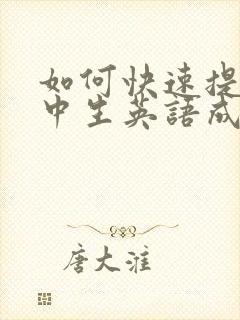 如何快速提
中生英語成
唐大淮